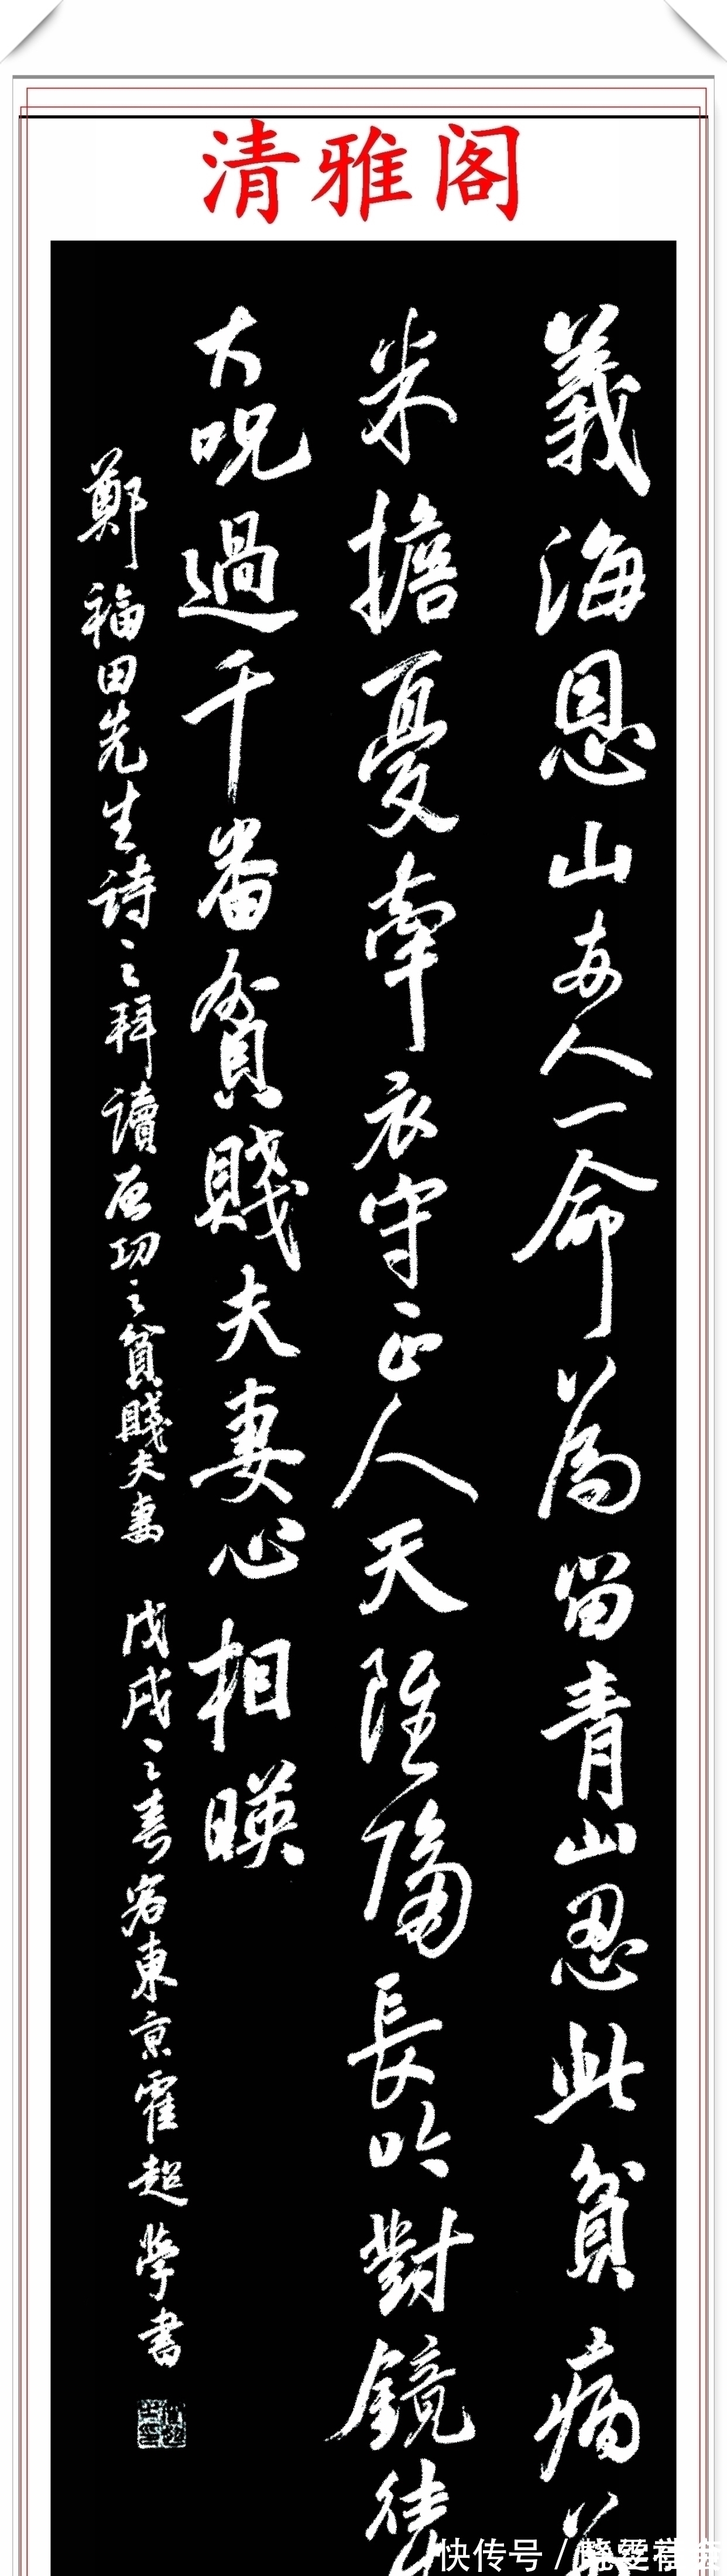 清雅阁
義海恩山人一命為留青山忍此貧病
米擔憂牽衣守正人天隔長吟對鏡
大呪過千番貧賤夫妻心相暎
鄭福田先生詩之拜讀啓功之貧賤夫妻 戊戌之春客東京霍超學書
快传号 /